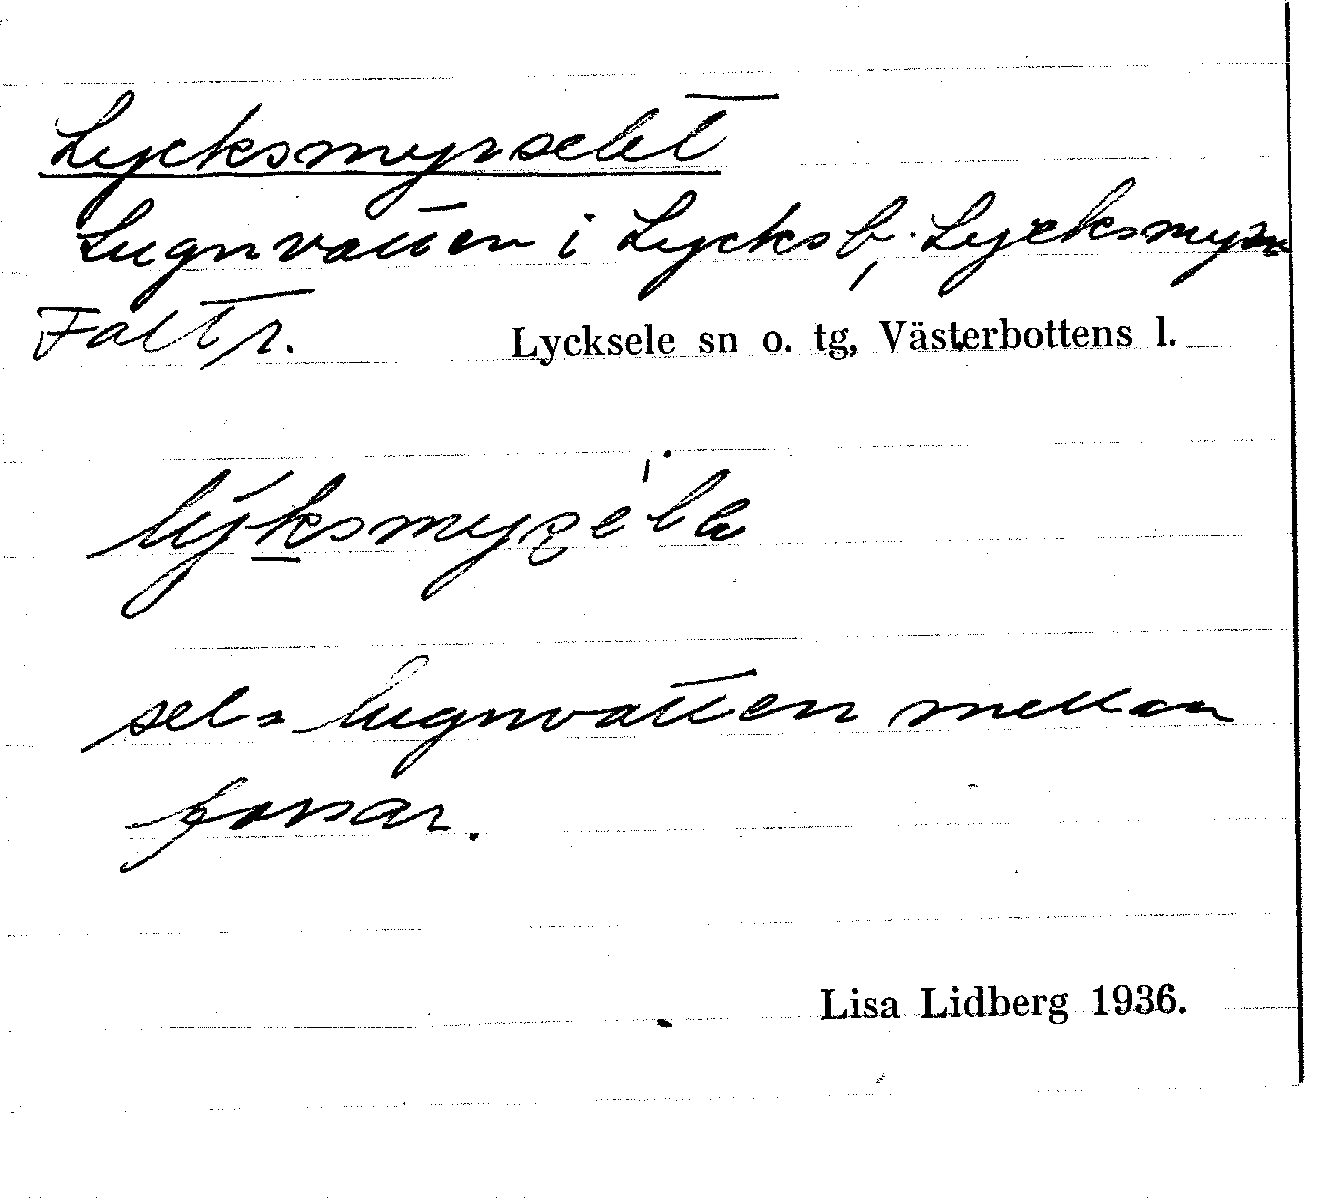 Lycksmyrselet
Lugnvatten i Lycksb, Lycksmyrn
Faltr. Lycksele sn o. tg, Västerbottens l.
sel = lugnvatten mellan
forsar.
Lisa Lidberg 1936.